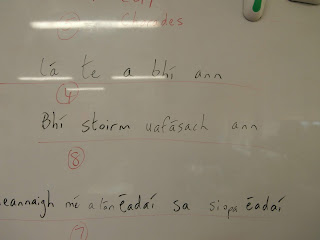 Lá te a bhí ann
4
Bhí stoirm uafásach ann
8
mé a lán éadaí sa siopa éadaí